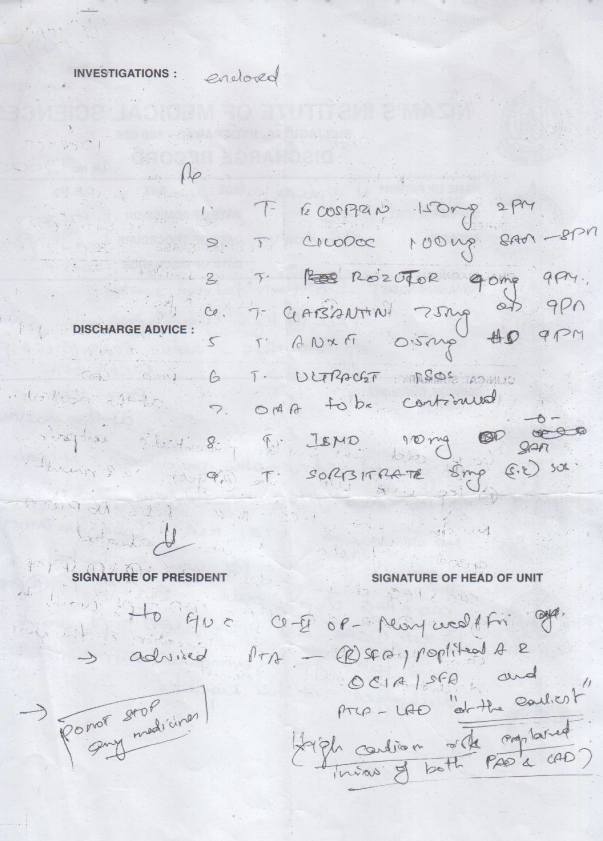 INVESTIGATIONS : enclosed
Rx
1. T. ECOSPRIN 150mg 2PM
2. T. CILODOC 100mg 8AM - 8PM
3 T. ROZUTOR 40mg 9PM.
4. T. GABANTIN 75mg OD 9PM
DISCHARGE ADVICE :
5 T. ANXIT 0.5mg HD 9PM
6 T. ULTRACET SOS
7. OHA to be continued
8. T. ISMO 10mg 8AM
9. T. SORBITRATE 5mg (S.L) SOS.
SIGNATURE OF PRESIDENT
SIGNATURE OF HEAD OF UNIT
to F/U C OP -
→ advised PTA - (R) SFA / popliteal A &
CIA / SFA and
PTCA - LAD "at the earliest"
→ Do not STOP
any medicines
(High cardiac risk explained
in view of both PAD & CAD)